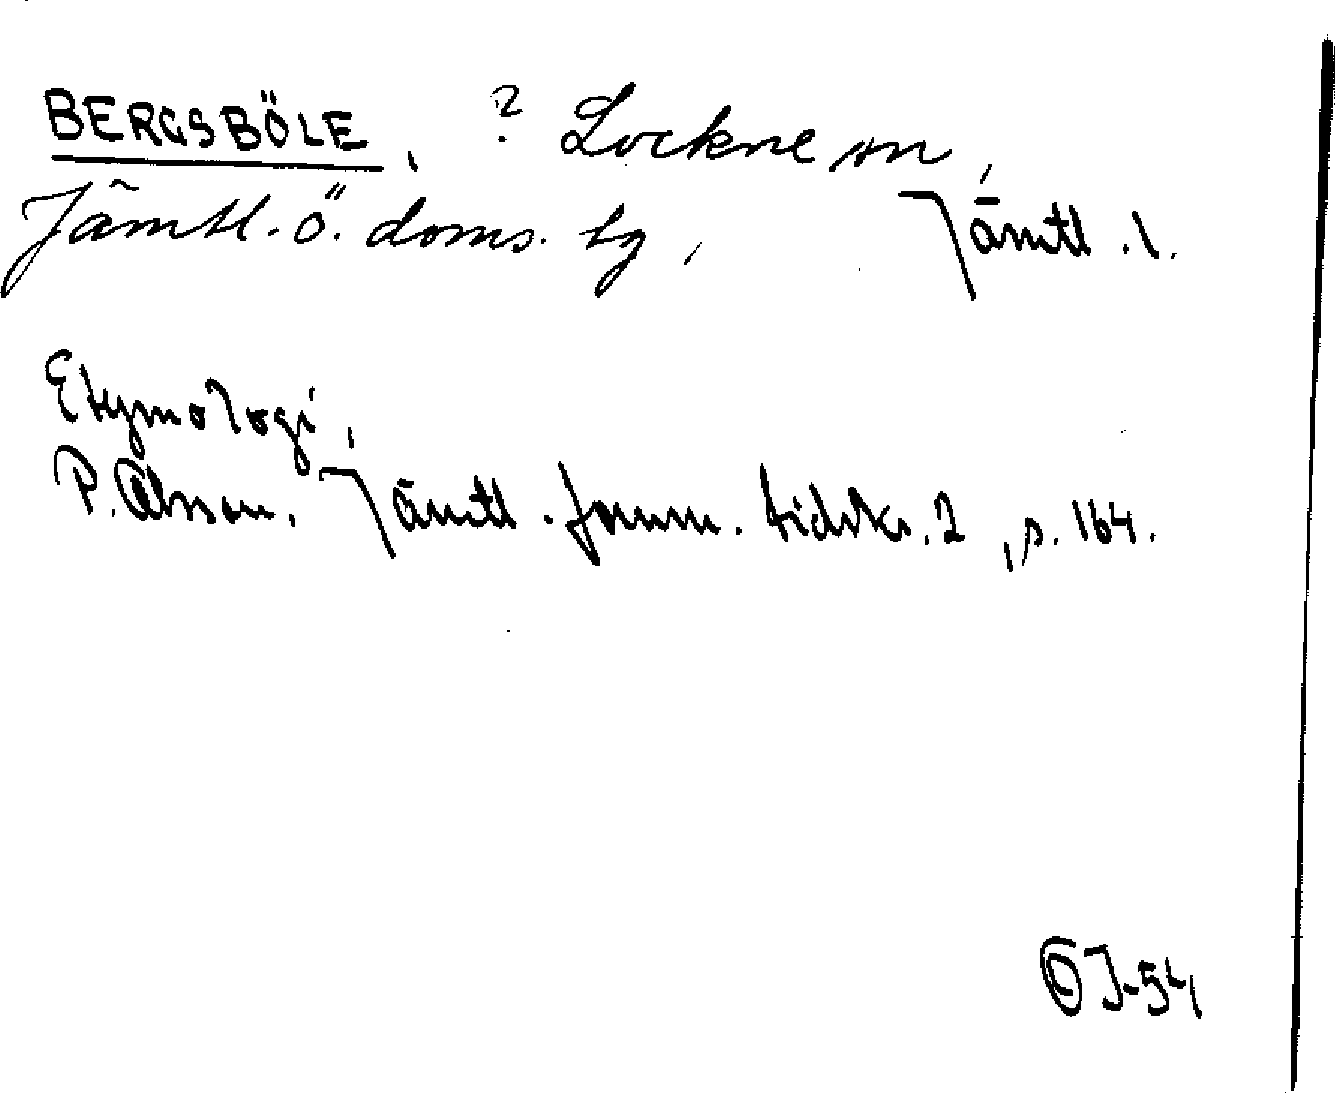 BERGSBÖLE, ? Lockne sn,
Jämtl. Ö. doms. tg, Jämtl. l.
Etymologi,
P. Olsson. Jämtl. fornm. tidskr. 2, s. 164.
OJ-54